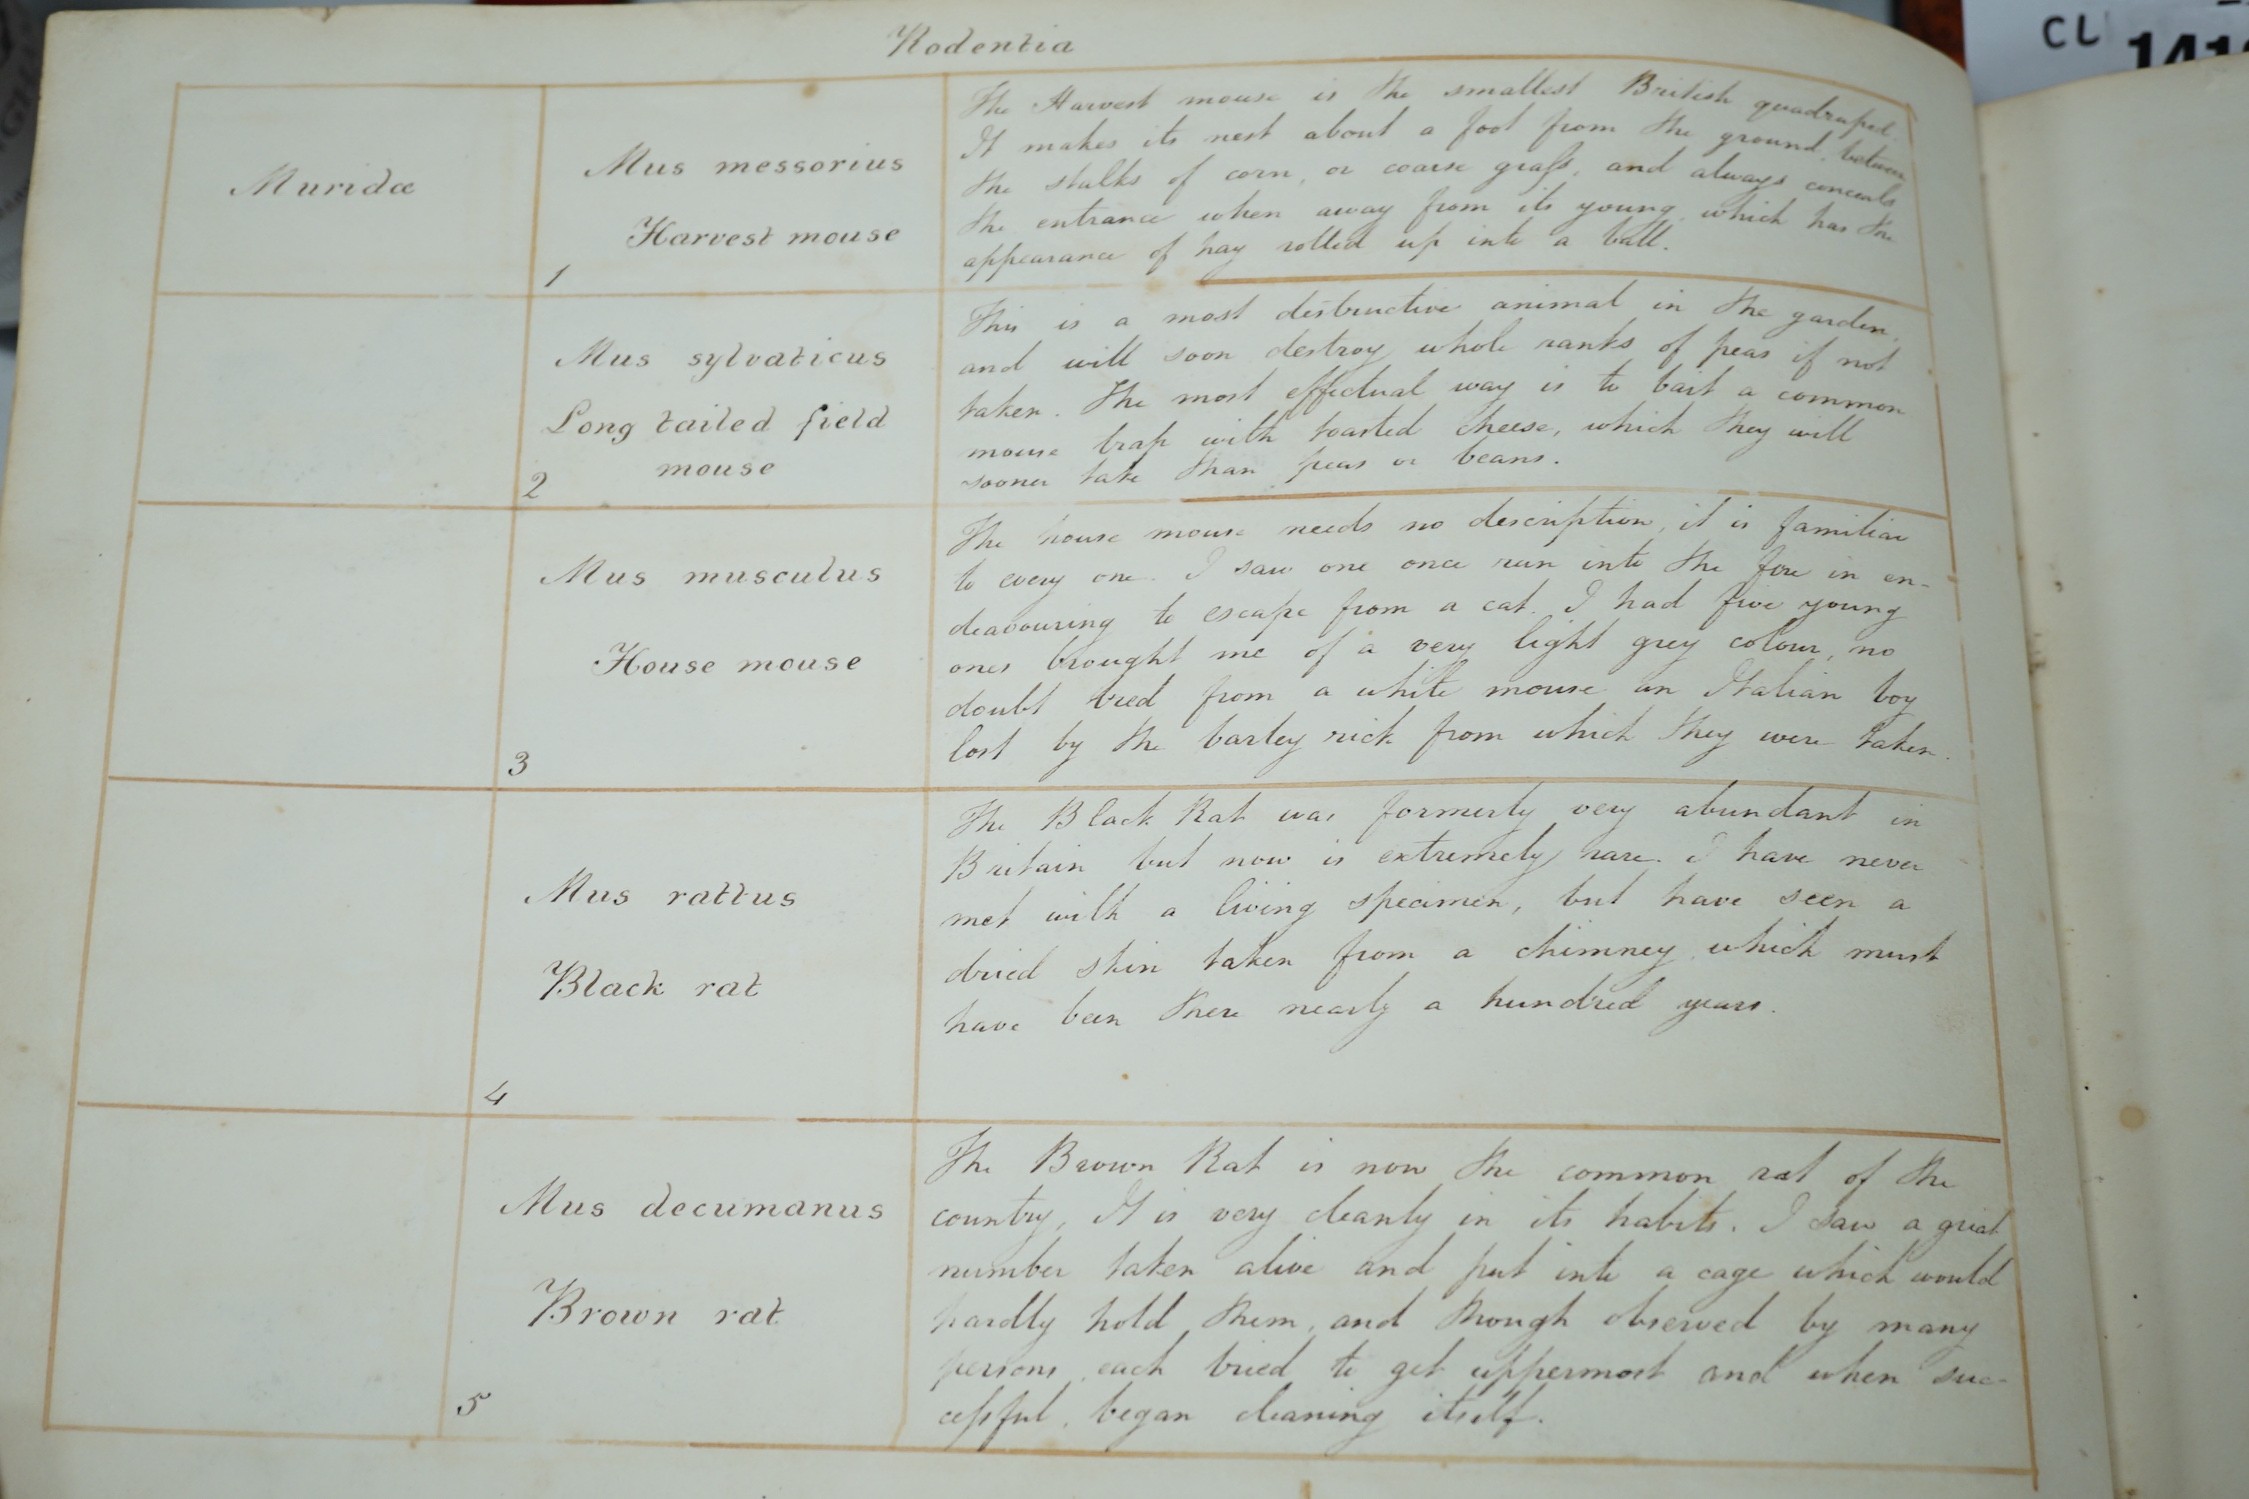 Rodentia
Muridæ
Mus messorius
Harvest mouse
1
The Harvest mouse is the smallest British quadruped.
It makes its nest about a foot from the ground, between
the stalks of corn, or coarse grass, and always conceals
the entrance when away from its young which has the
appearance of hay rolled up into a ball.
Mus sylvaticus
Long tailed field
mouse
2
This is a most destructive animal in the garden,
and will soon destroy whole ranks of peas if not
taken. The most effectual way is to bait a common
mouse trap with toasted cheese, which they will
sooner take than peas or beans.
Mus musculus
House mouse
3
The house mouse needs no description, it is familiar
to every one. I saw one once run into the fire in en-
deavouring to escape from a cat. I had five young
ones brought me of a very light grey colour, no
doubt bred from a white mouse an Italian boy
lost by the barley rick from which they were taken.
Mus rattus
Black rat
4
The Black Rat was formerly very abundant in
Britain but now is extremely rare. I have never
met with a living specimen, but have seen a
dried skin taken from a chimney which must
have been there nearly a hundred years.
Mus decumanus
Brown rat
5
The Brown Rat is now the common rat of the
country, It is very cleanly in its habits. I saw a great
number taken alive and put into a cage which would
hardly hold them, and though observed by many
persons, each tried to get uppermost and when suc-
cessful, began cleaning itself.
CL
141